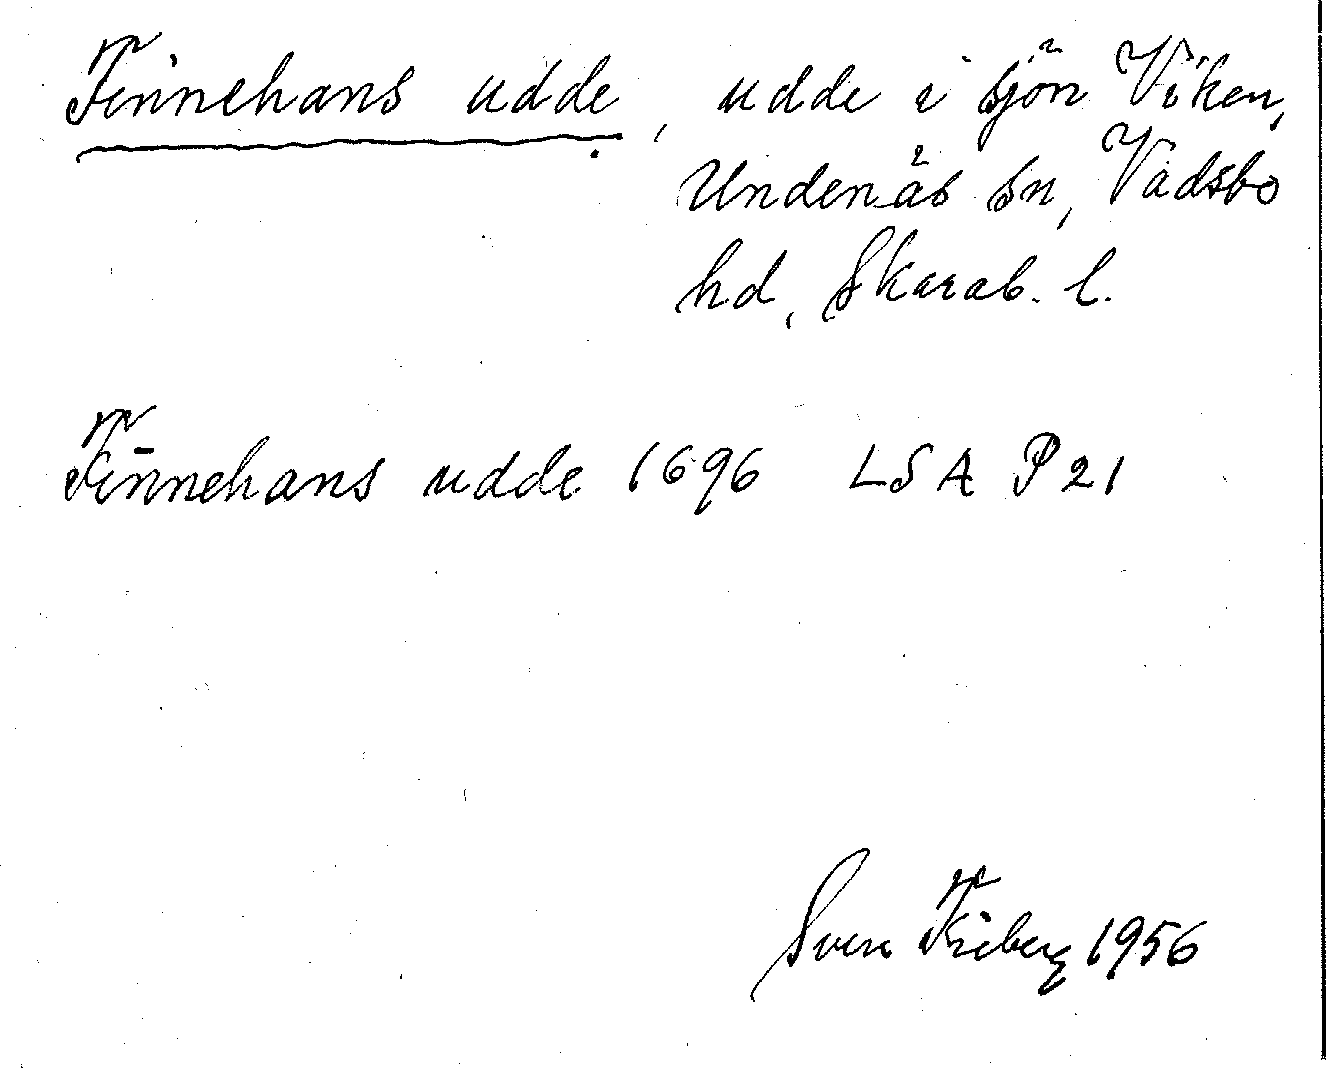 Finnehans udde, udde i sjön Viken,
Undenäs sn, Vadsbo
hd, Skarab. l.
Fin̄nehans udde 1696 LSA P 21
Sven Friberg 1956